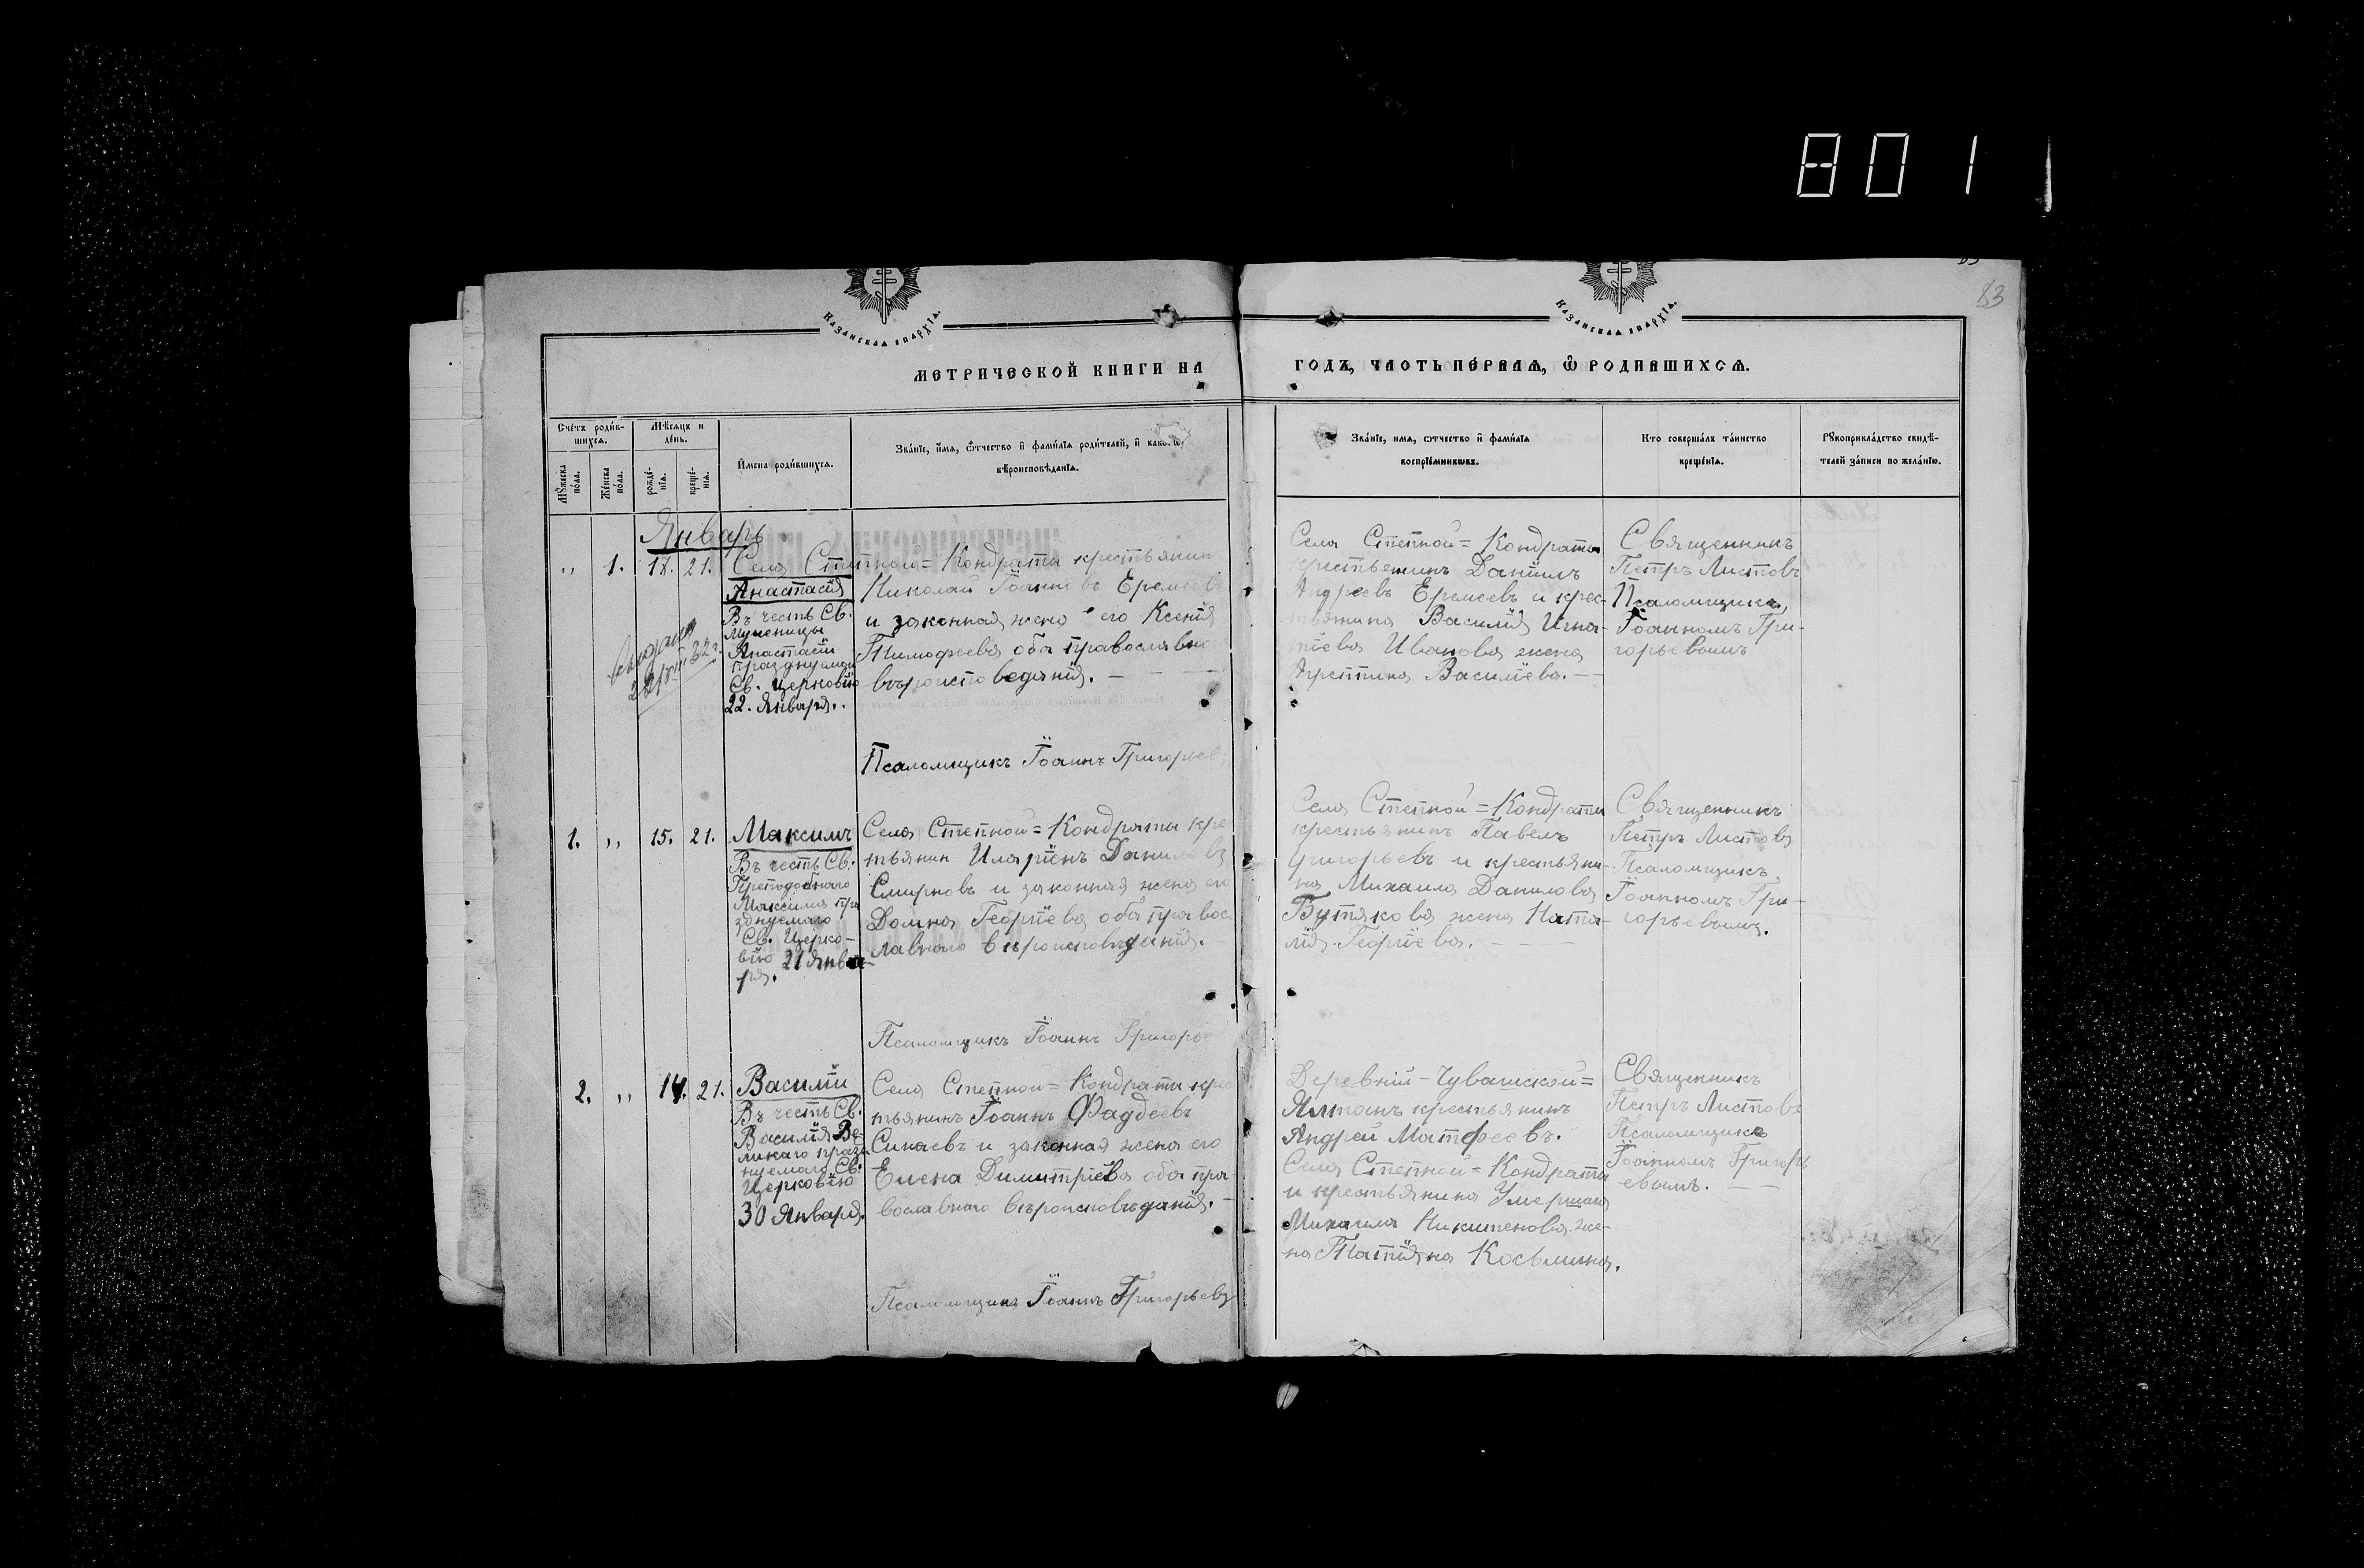 801
83
КАЗАНСКАѦ ЕПАРХІѦ.
КАЗАНСКАѦ ЕПАРХІѦ.
МЕТРИЧЕСКОЙ КНИГИ НА
ГОДЪ, ЧАСТЬ ПЕРВАѦ, Ѿ РОДИВШИХСѦ.
Счетъ родив-
шихсѧ.
Мѣсѧцъ и
день.
Мꙋжеска
пола.
Женска
пола.
рожде-
нїѧ.
креще-
нїѧ.
Имена родившихсѧ.
Званїе, имѧ, ѿчество и фамилїѧ родителей, и
вѣроисповѣданїѧ.
Званїе, имѧ, ѿчество и фамилїѧ
воспрїемниковъ.
Кто совершалъ таинство
крещенїѧ.
Рꙋкоприкладство свидѣ-
телей записи по желанїю.
Январь
,, 1. 18. 21.
Анастасія
Въ честь Св.
Мученицы
Анастасіи
празднуемой
Св. Церковію
22. Января.
Села Степной= Кондраты крестьянин
Николай Іоанновъ Еремеевъ
и законная жена его Ксенія
Тимофеева оба православно
вѣроисповеданія. –
Псаломщикъ Іоаннъ Григорьев
Села Степной= Кондраты
крестьянинъ Даніилъ
Андреевъ Еремеевъ и крес-
тьянина Василія Игна-
тіева Иванова жена
Агрепина Василіева. –
Священникъ
Петръ Листовъ
Псаломщикъ,
Іоанномъ Гри-
горьевымъ
1. ,, 15. 21.
Максимъ
Въ честь Св.
Преподобнаго
Максима пра
зднуемаго
Св. Церко-
вію 21 Янва-
ря.
Села Степной= Кондраты кре
тьянин Иларіенъ Даниловъ
Смирновъ и законная жена его
Домна Георгіева оба правос
лавнаго вѣроисповѣданія. –
Псаломщикъ Іоаннъ Григорье
Села Степной= Кондраты
крестьянинъ Павелъ
Григорьевъ и крестьяни-
на Михаила Данилова
Бутякова жена Ната-
лія Георгіева. –
Священникъ
Петръ Листовъ
Псаломщикъ,
Іоанномъ Гри-
горьевымъ.
2. ,, 14. 21.
Василій
Въ честь Св.
Василія Ве-
ликаго праз
нуемаго Св.
Церковію
30 Января.
Села Степной= Кондраты крес
тьянинъ Іоаннъ Фаддеевъ
Синаевъ и законная жена его
Елена Димитріева оба пра
вославнаго вѣроисповѣданія. –
Псаломщикъ Іоаннъ Григорьевъ
Деревній – Чувашской=
крестьянинъ
Андрей Матфеевъ.
Села Степной= Кондраты
и крестьянина Умершаго
Михаила Никитенова же-
на Татіяна Косьмина.
Священникъ
Петръ Листовъ
Псаломщикъ
Іоанномъ Григорь
евымъ. –